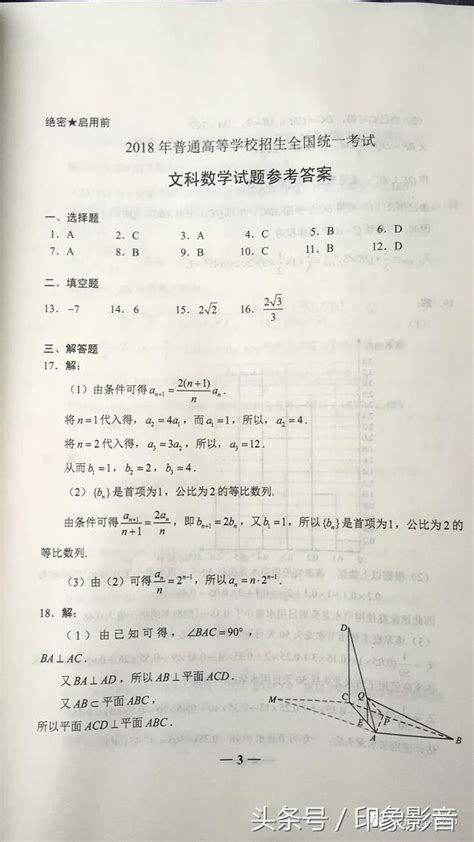 绝密★启用前
2018 年普通高等学校招生全国统一考试
文科数学试题参考答案
一、选择题
1. A 2. C 3. A 4. C 5. B 6. D
7. A 8. B 9. B 10. C 11. B 12. D
二、填空题
13. -7 14. 6 15. 2√2 16. 2√3/3
三、解答题
17. 解：
（1）由条件可得 aₙ₊₁ = 2(n+1)/n aₙ.
将 n=1 代入得，a₂=4a₁，而 a₁=1，所以，a₂=4.
将 n=2 代入得，a₃=3a₂，所以，a₃=12.
从而 b₁=1，b₂=2，b₃=4.
（2）{bₙ} 是首项为 1，公比为 2 的等比数列.
由条件可得 aₙ₊₁/(n+1) = 2aₙ/n，即 bₙ₊₁=2bₙ，又 b₁=1，所以 {bₙ} 是首项为 1，公比为 2 的
等比数列.
（3）由（2）可得 aₙ/n = 2ⁿ⁻¹，所以 aₙ=n·2ⁿ⁻¹.
18. 解：
（1）由已知可得，∠BAC=90°，
BA⊥AC.
又 BA⊥AD，所以 AB⊥平面 ACD.
又 AB⊂平面 ABC，
所以平面 ACD⊥平面 ABC.
D
M
C
Q
P
E
A
B
— 3 —
头条号 / 印象影音